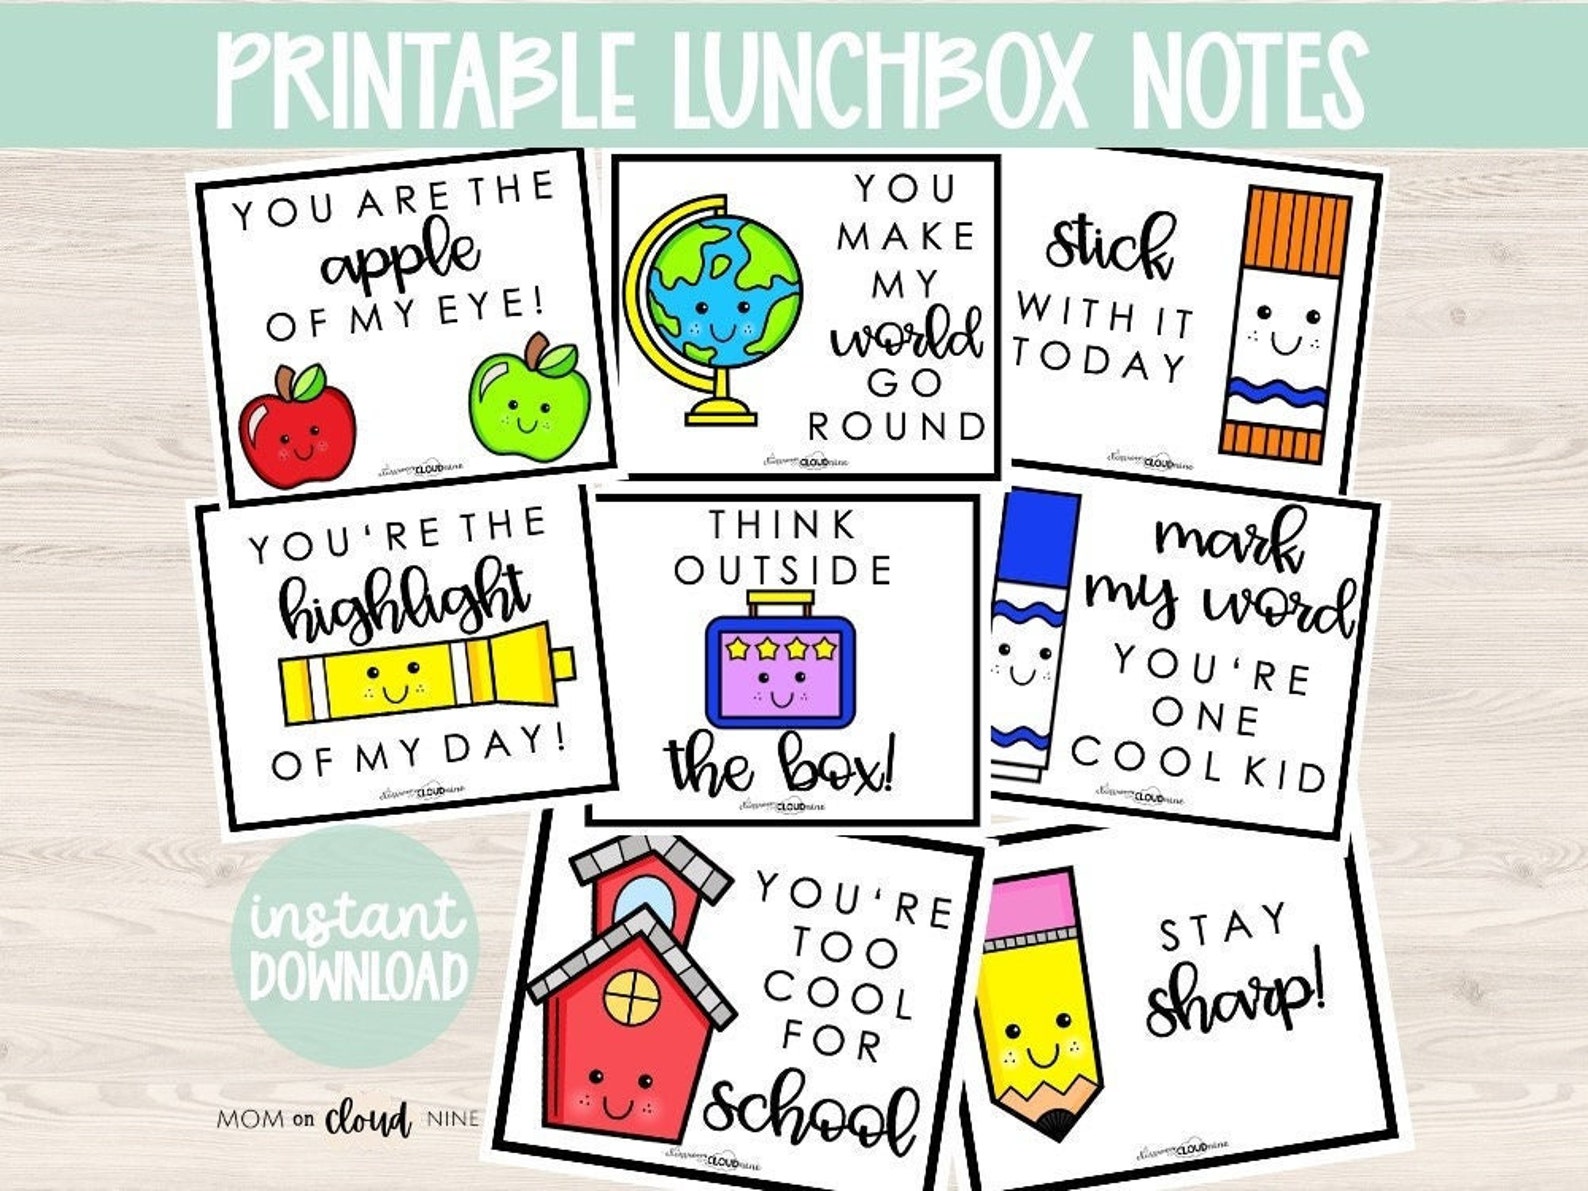 PRINTABLE LUNCHBOX NOTES
YOU ARE THE
apple
OF MY EYE!
CLOUDnine
YOU
MAKE
MY
world
GO
ROUND
CLOUDnine
stick
WITH IT
TODAY
CLOUDnine
YOU'RE THE
highlight
OF MY DAY!
CLOUDnine
THINK
OUTSIDE
the box!
CLOUDnine
mark
my word
YOU'RE
ONE
COOL KID
CLOUDnine
instant
DOWNLOAD
MOM on cloud NINE
YOU'RE
TOO
COOL
FOR
school
CLOUDnine
STAY
sharp!
CLOUDnine